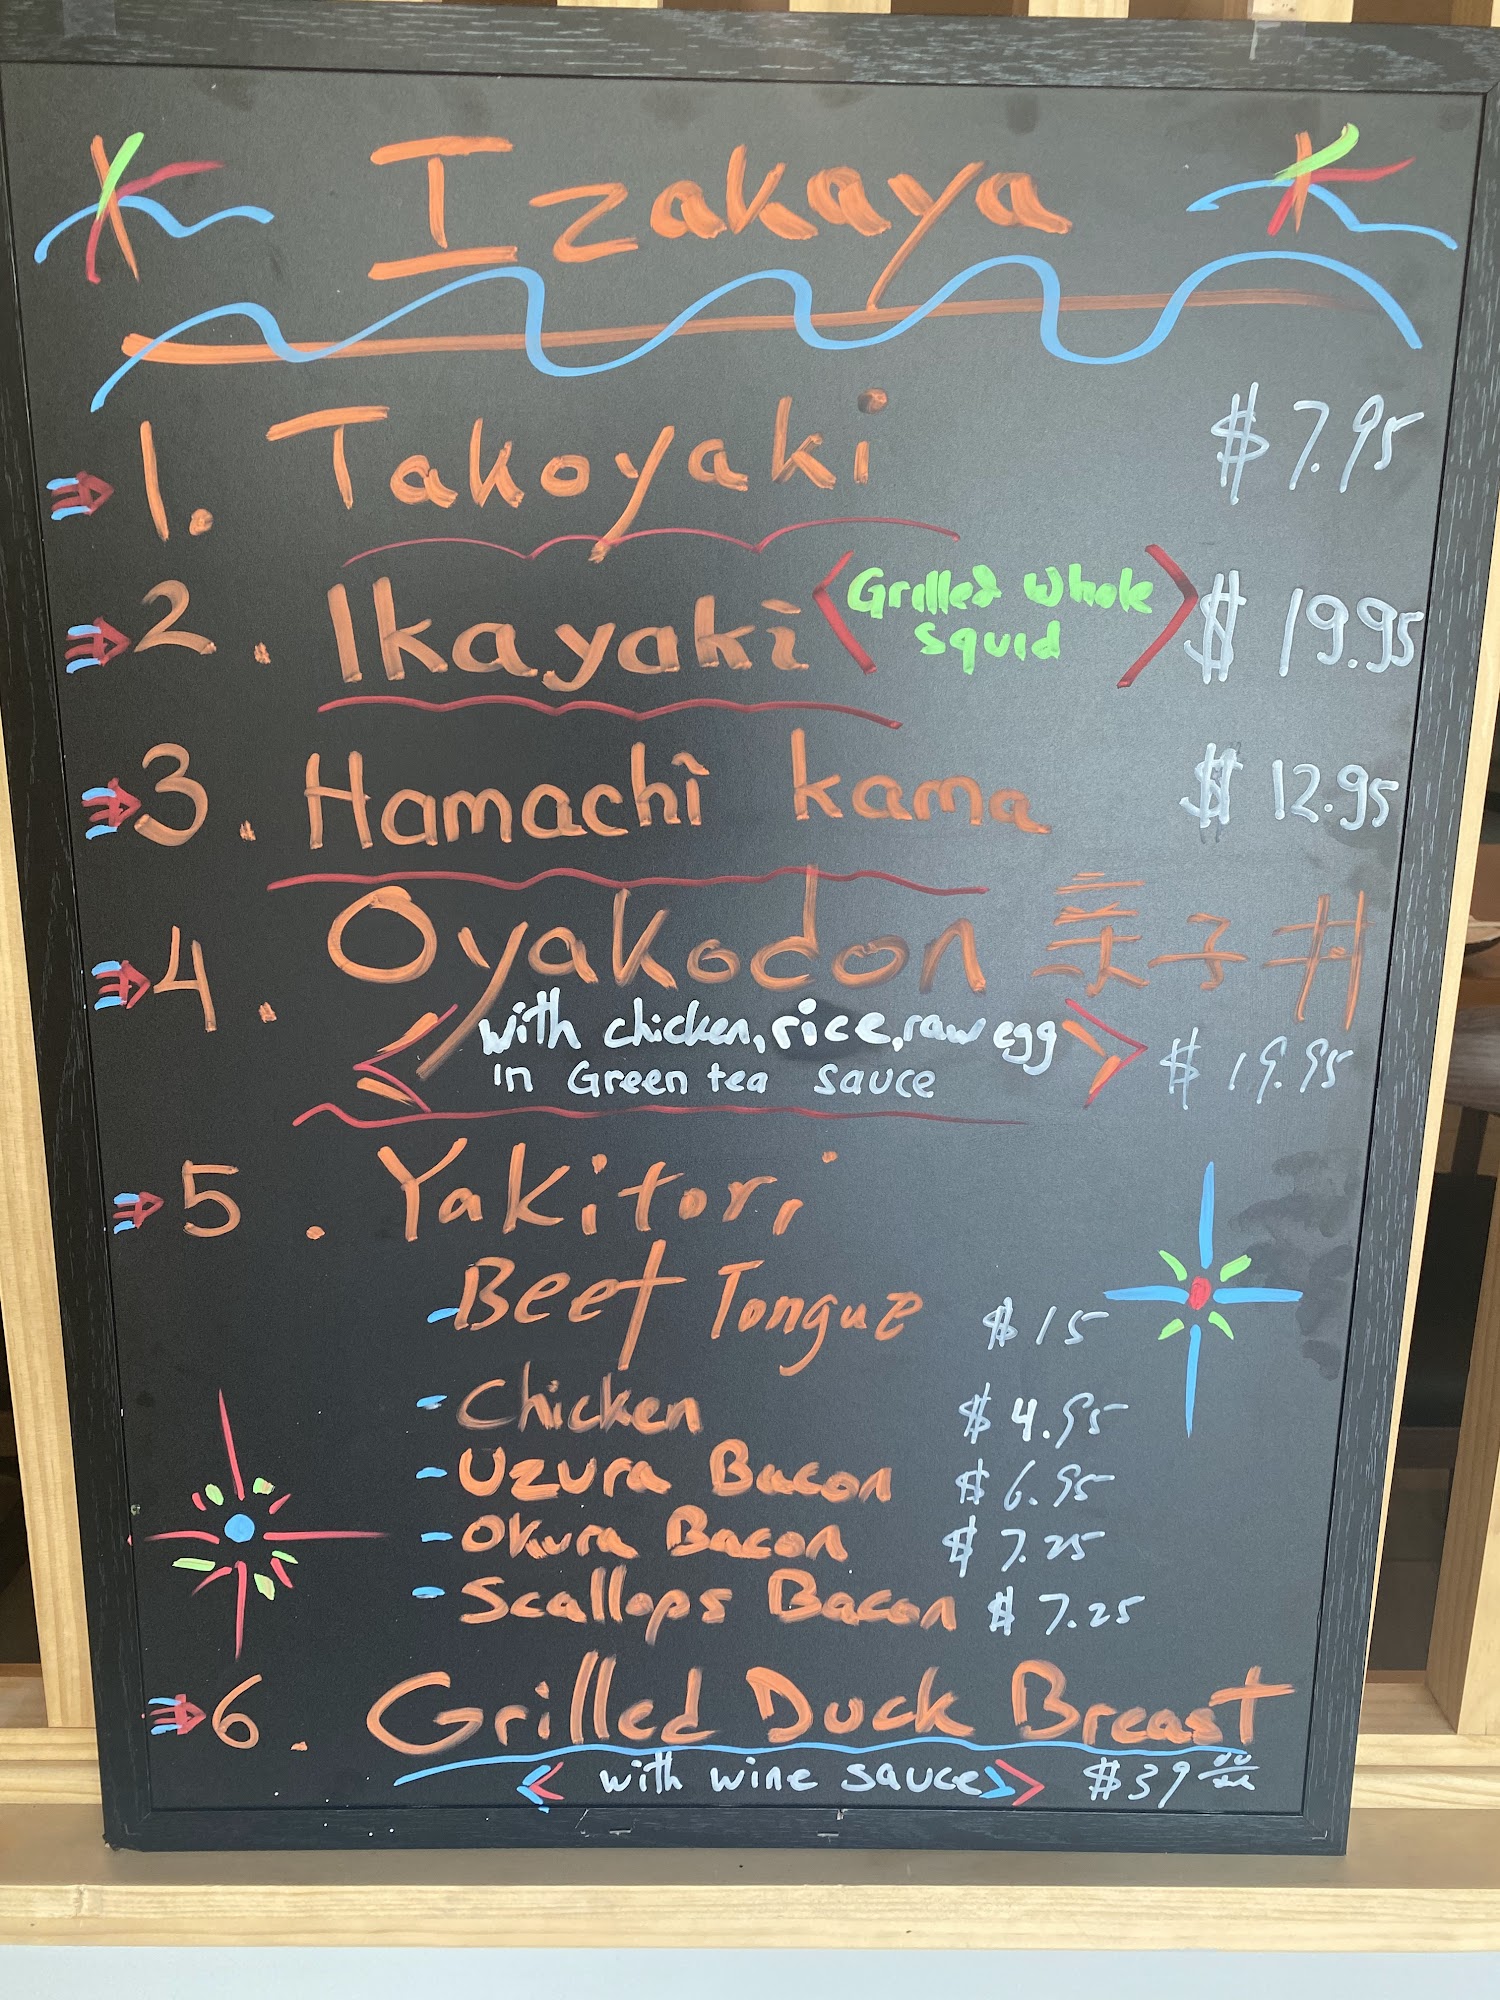 Izakaya
1. Takoyaki $7.95
2. Ikayaki Grilled Whole $19.95
Squid
3. Hamachi kama $12.95
4. Oyakodon 亲子井
with chicken, rice, raw egg
in Green tea sauce $19.95
5. Yakitori
- Beef Tongue $15
- Chicken $4.95
- Uzura Bacon $6.95
- Okura Bacon $7.25
- Scallops Bacon $7.25
6. Grilled Duck Breast
with wine sauce $39